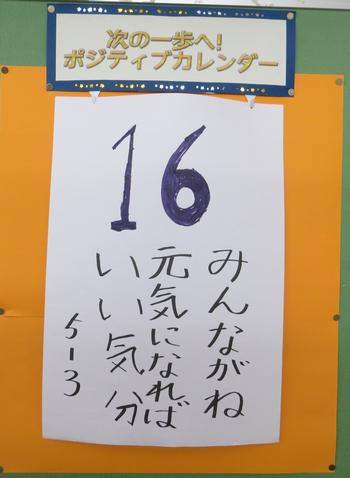 次の一歩へ!
ポジティブカレンダー
16
みんながね
元気になれば
いい気分
5-3